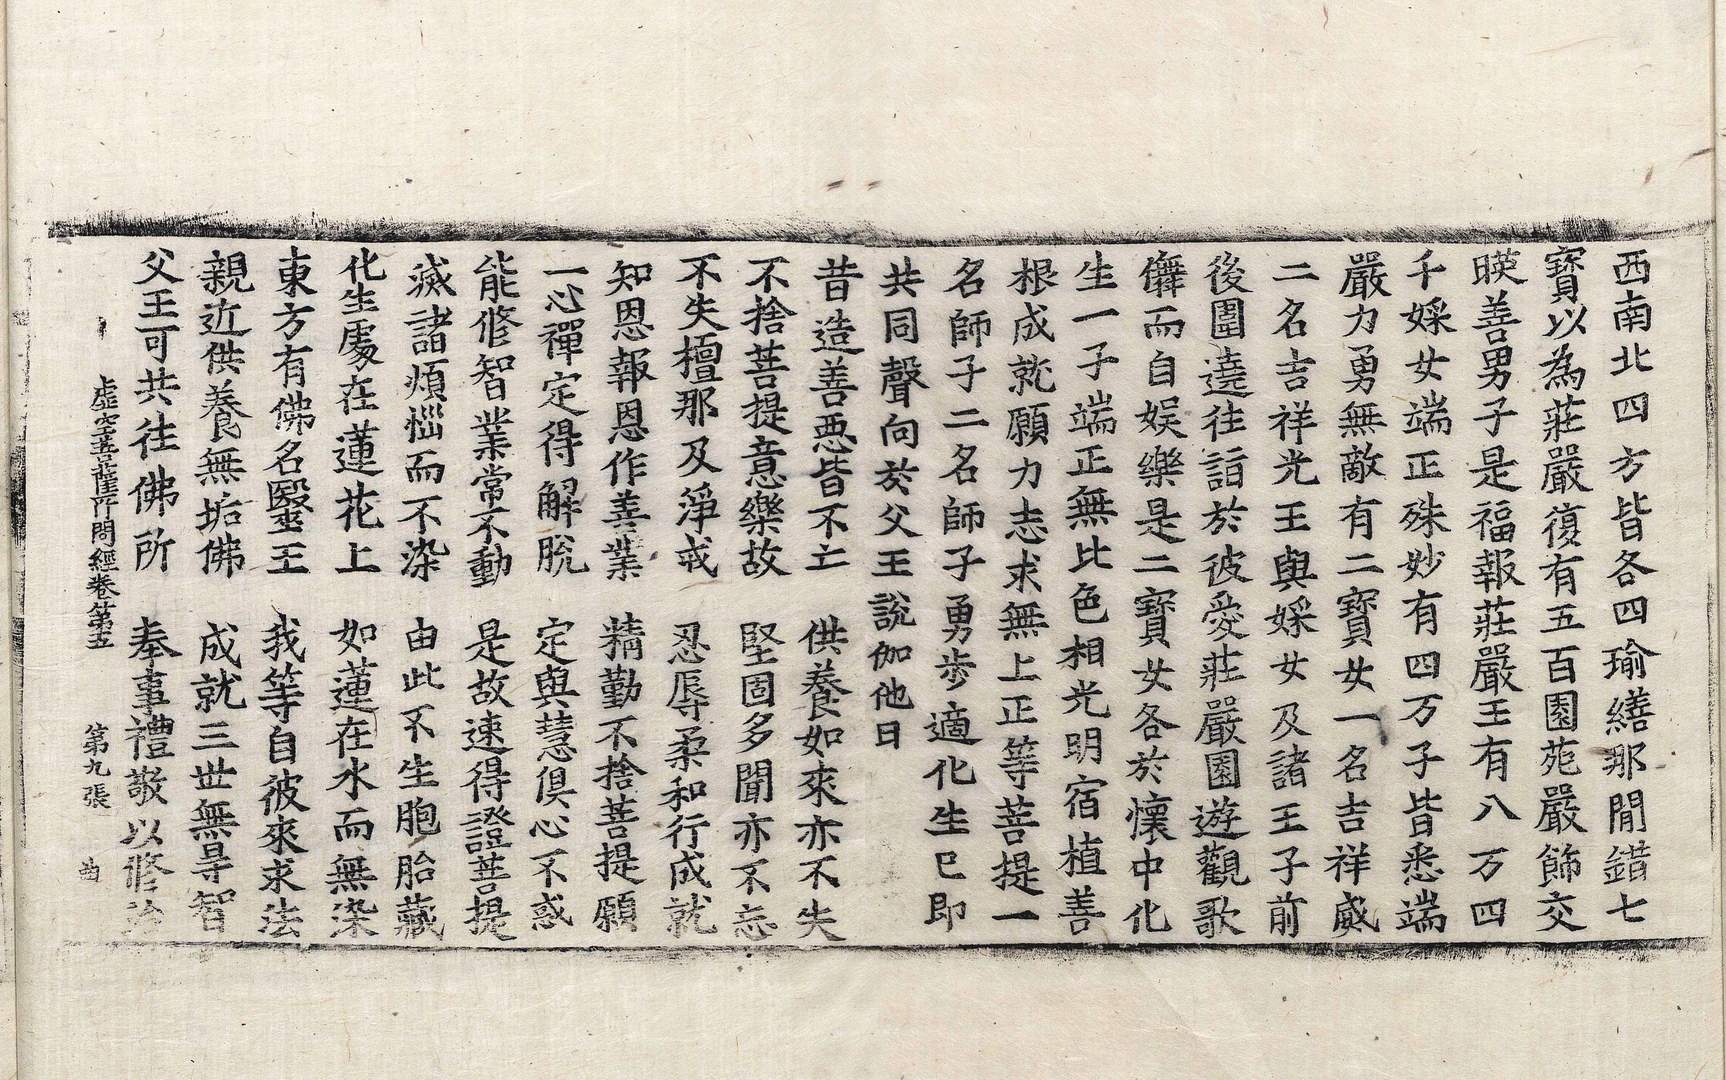 西南北四方皆各四瑜繕那閒錯七
寶以為莊嚴復有五百園苑嚴飾交
暎善男子是福報莊嚴王有八万四
千婇女端正殊妙有四万子皆悉端
嚴力勇無敵有二寶女一名吉祥威
二名吉祥光王與婇女及諸王子前
後圍遶往詣於彼愛莊嚴園遊觀歌
儛而自娛樂是二寶女各於懷中化
生一子端正無比色相光明宿植善
根成就願力志求無上正等菩提一
名師子二名師子勇步適化生已即
共同聲向於父王說伽他曰
昔造善惡皆不亡　供養如來亦不失
不捨菩提意樂故　堅固多聞亦不忘
不失檀那及淨戒　忍辱柔和行成就
知恩報恩作善業　精勤不捨菩提願
一心禪定得解脫　定與慧俱心不惑
能修智業常不動　是故速得證菩提
滅諸煩惱而不染　由此不生胞胎藏
化生處在蓮花上　如蓮在水而無染
東方有佛名毉王　我等自彼來求法
親近供養無垢佛　成就三世無㝵智
父王可共往佛所　奉事禮敬以修
虛空菩薩所問經卷第五　第九張